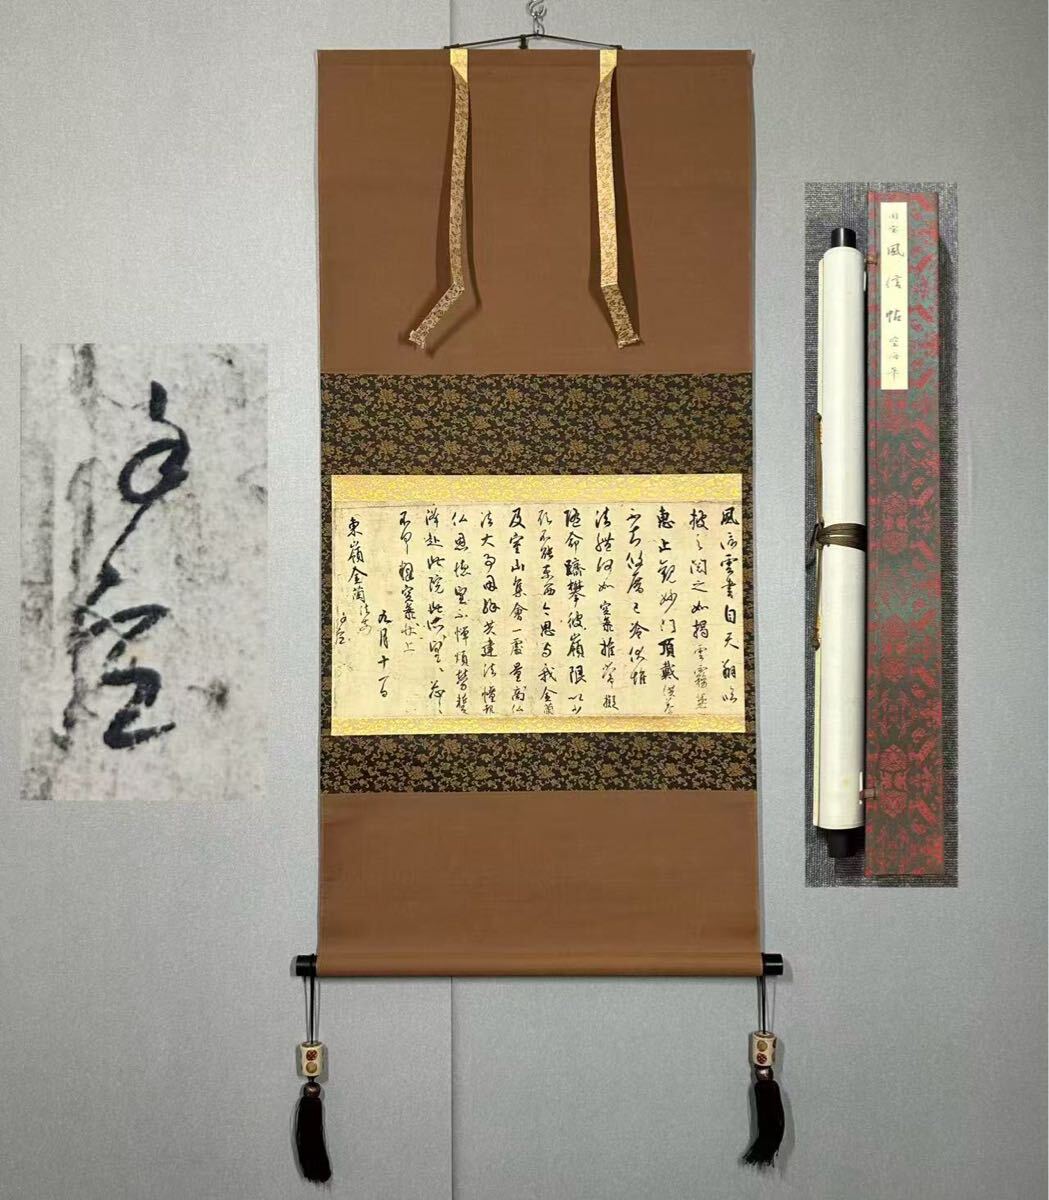 風信雲書自天翔臨
披之閲之如掲雲霧兼
恵止観妙門頂戴供養
不知攸厝已冷伏惟
法體何如空海推常擬
随命躋攀彼嶺限以少
願不能東西今思与我金蘭
及室山集會一處量商仏
法大事因縁共建法幢報
仏恩徳望不憚煩勞蹔
降赴此院此所望々々忩々
不具釋空海状上
九月十一日
東嶺金蘭法前
謹空
謹空
国宝 風信帖 空海筆